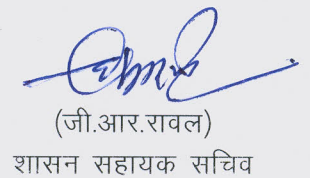 (जी.आर.रावल)
शासन सहायक सचिव